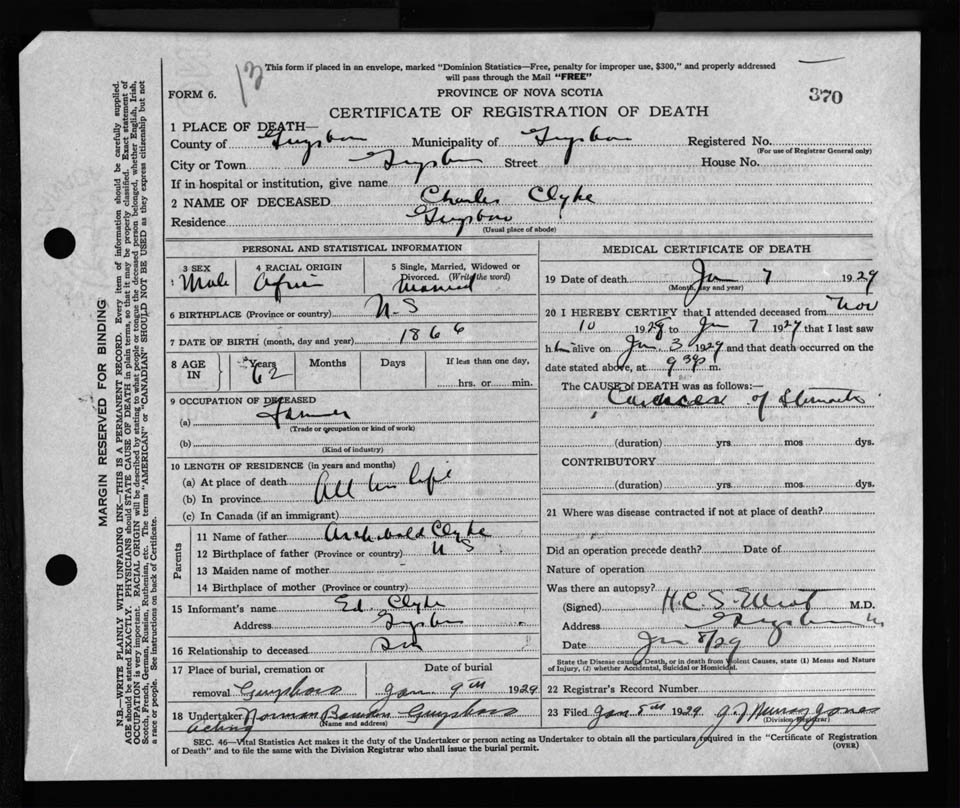 This form if placed in an envelope, marked "Dominion Statistics—Free, penalty for improper use, $300," and properly addressed
will pass through the Mail "FREE"
FORM 6.
PROVINCE OF NOVA SCOTIA
370
CERTIFICATE OF REGISTRATION OF DEATH
1 PLACE OF DEATH—
County of Guysboro Municipality of Guysboro Registered No.
(For use of Registrar General only)
City or Town Guysboro Street House No.
If in hospital or institution, give name
2 NAME OF DECEASED Charles Clyke
Residence Guysboro
(Usual place of abode)
PERSONAL AND STATISTICAL INFORMATION
3 SEX
Male
4 RACIAL ORIGIN
5 Single, Married, Widowed or
Divorced. (Write the word)
Married
6 BIRTHPLACE (Province or country) N.S
7 DATE OF BIRTH (month, day and year) 1866
8 AGE IN
Years
62
Months
Days
If less than one day,
hrs. or min.
9 OCCUPATION OF DECEASED
(a) Farmer
(Trade or occupation or kind of work)
(b)
(Kind of industry)
10 LENGTH OF RESIDENCE (in years and months)
(a) At place of death
(b) In province All his life
(c) In Canada (if an immigrant)
Parents
11 Name of father Archibald Clyke
12 Birthplace of father (Province or country) N S
13 Maiden name of mother
14 Birthplace of mother (Province or country)
15 Informant's name Ed. Clyke
Address Guysboro
16 Relationship to deceased Son
17 Place of burial, cremation or
removal Guysboro
Date of burial
Jan 9th 1929
18 Undertaker Norman Guysboro
(Name and address)
acting
MEDICAL CERTIFICATE OF DEATH
19 Date of death Jan 7 1929
(Month, day and year)
20 I HEREBY CERTIFY that I attended deceased from Nov
10 1928 to Jan 7 1929 that I last saw
him alive on Jan 3 1929 and that death occurred on the
date stated above, at 9 30 p m.
The CAUSE of DEATH was as follows:—
of Stomach
(duration) yrs mos dys.
CONTRIBUTORY
(duration) yrs. mos. dys.
21 Where was disease contracted if not at place of death?
Did an operation precede death? Date of
Nature of operation
Was there an autopsy?
(Signed) H.C.S. Elliot M.D.
Address Guysboro
Date Jan 8/29
State the Disease causing Death, or in death from Violent Causes, state (1) Means and Nature
of Injury, (2) whether Accidental, Suicidal or Homicidal.
22 Registrar's Record Number
23 Filed Jan 8th 1929 G J Murray Jones
(Division Registrar)
SEC. 46—Vital Statistics Act makes it the duty of the Undertaker or person acting as Undertaker to obtain all the particulars required in the "Certificate of Registration
of Death" and to file the same with the Division Registrar who shall issue the burial permit.
(OVER)
MARGIN RESERVED FOR BINDING
N.B.—WRITE PLAINLY WITH UNFADING INK—THIS IS A PERMANENT RECORD. Every item of information should be carefully supplied.
AGE should be stated EXACTLY. PHYSICIANS should STATE CAUSE OF DEATH in plain terms, so that it may be properly classified. Exact statement of
OCCUPATION is very important. RACIAL ORIGIN will be described by stating to what people or tongue the deceased person belonged, whether English, Irish,
Scotch, French, German, Russian, Ruthenian, etc. The terms "AMERICAN" or "CANADIAN" SHOULD NOT BE USED as they express citizenship but not
a race or people. See instructions on back of Certificate.